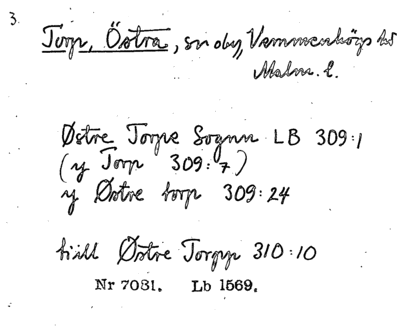 3.
Torp, Östra, sn oby, Vemmenhögs hd
Malm. l.
Østre Torpe Sognn LB 309:1
(y Torp 309:7)
y Østre torp 309:24
tiill Østre Torpp 310:10
Nr 7031. Lb 1569.